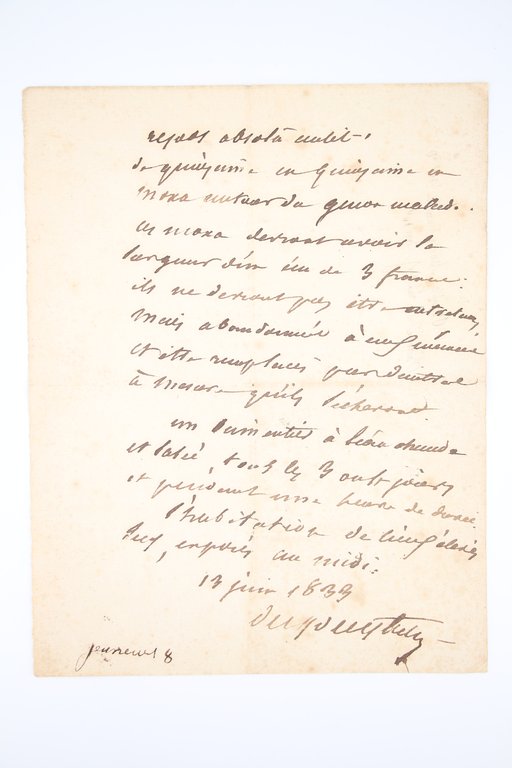 repos absolu au lit.
de quinzaine en quinzaine un
moxa autour du genou malade.
ces moxa devront avoir la
largeur d'un écu de 3 francs.
ils ne devront pas être entretenus
mais abandonnés à eux mêmes
et être remplacés par d'autres
à mesure qu'ils sécheront.
un bain entier à l'eau chaude
et salée, tous les 3 ou 4 jours
et pendant une heure de durée.
l'habitation de lieux élevés
secs, exposés au midi.
13 juin 1833
Dupuytren
8